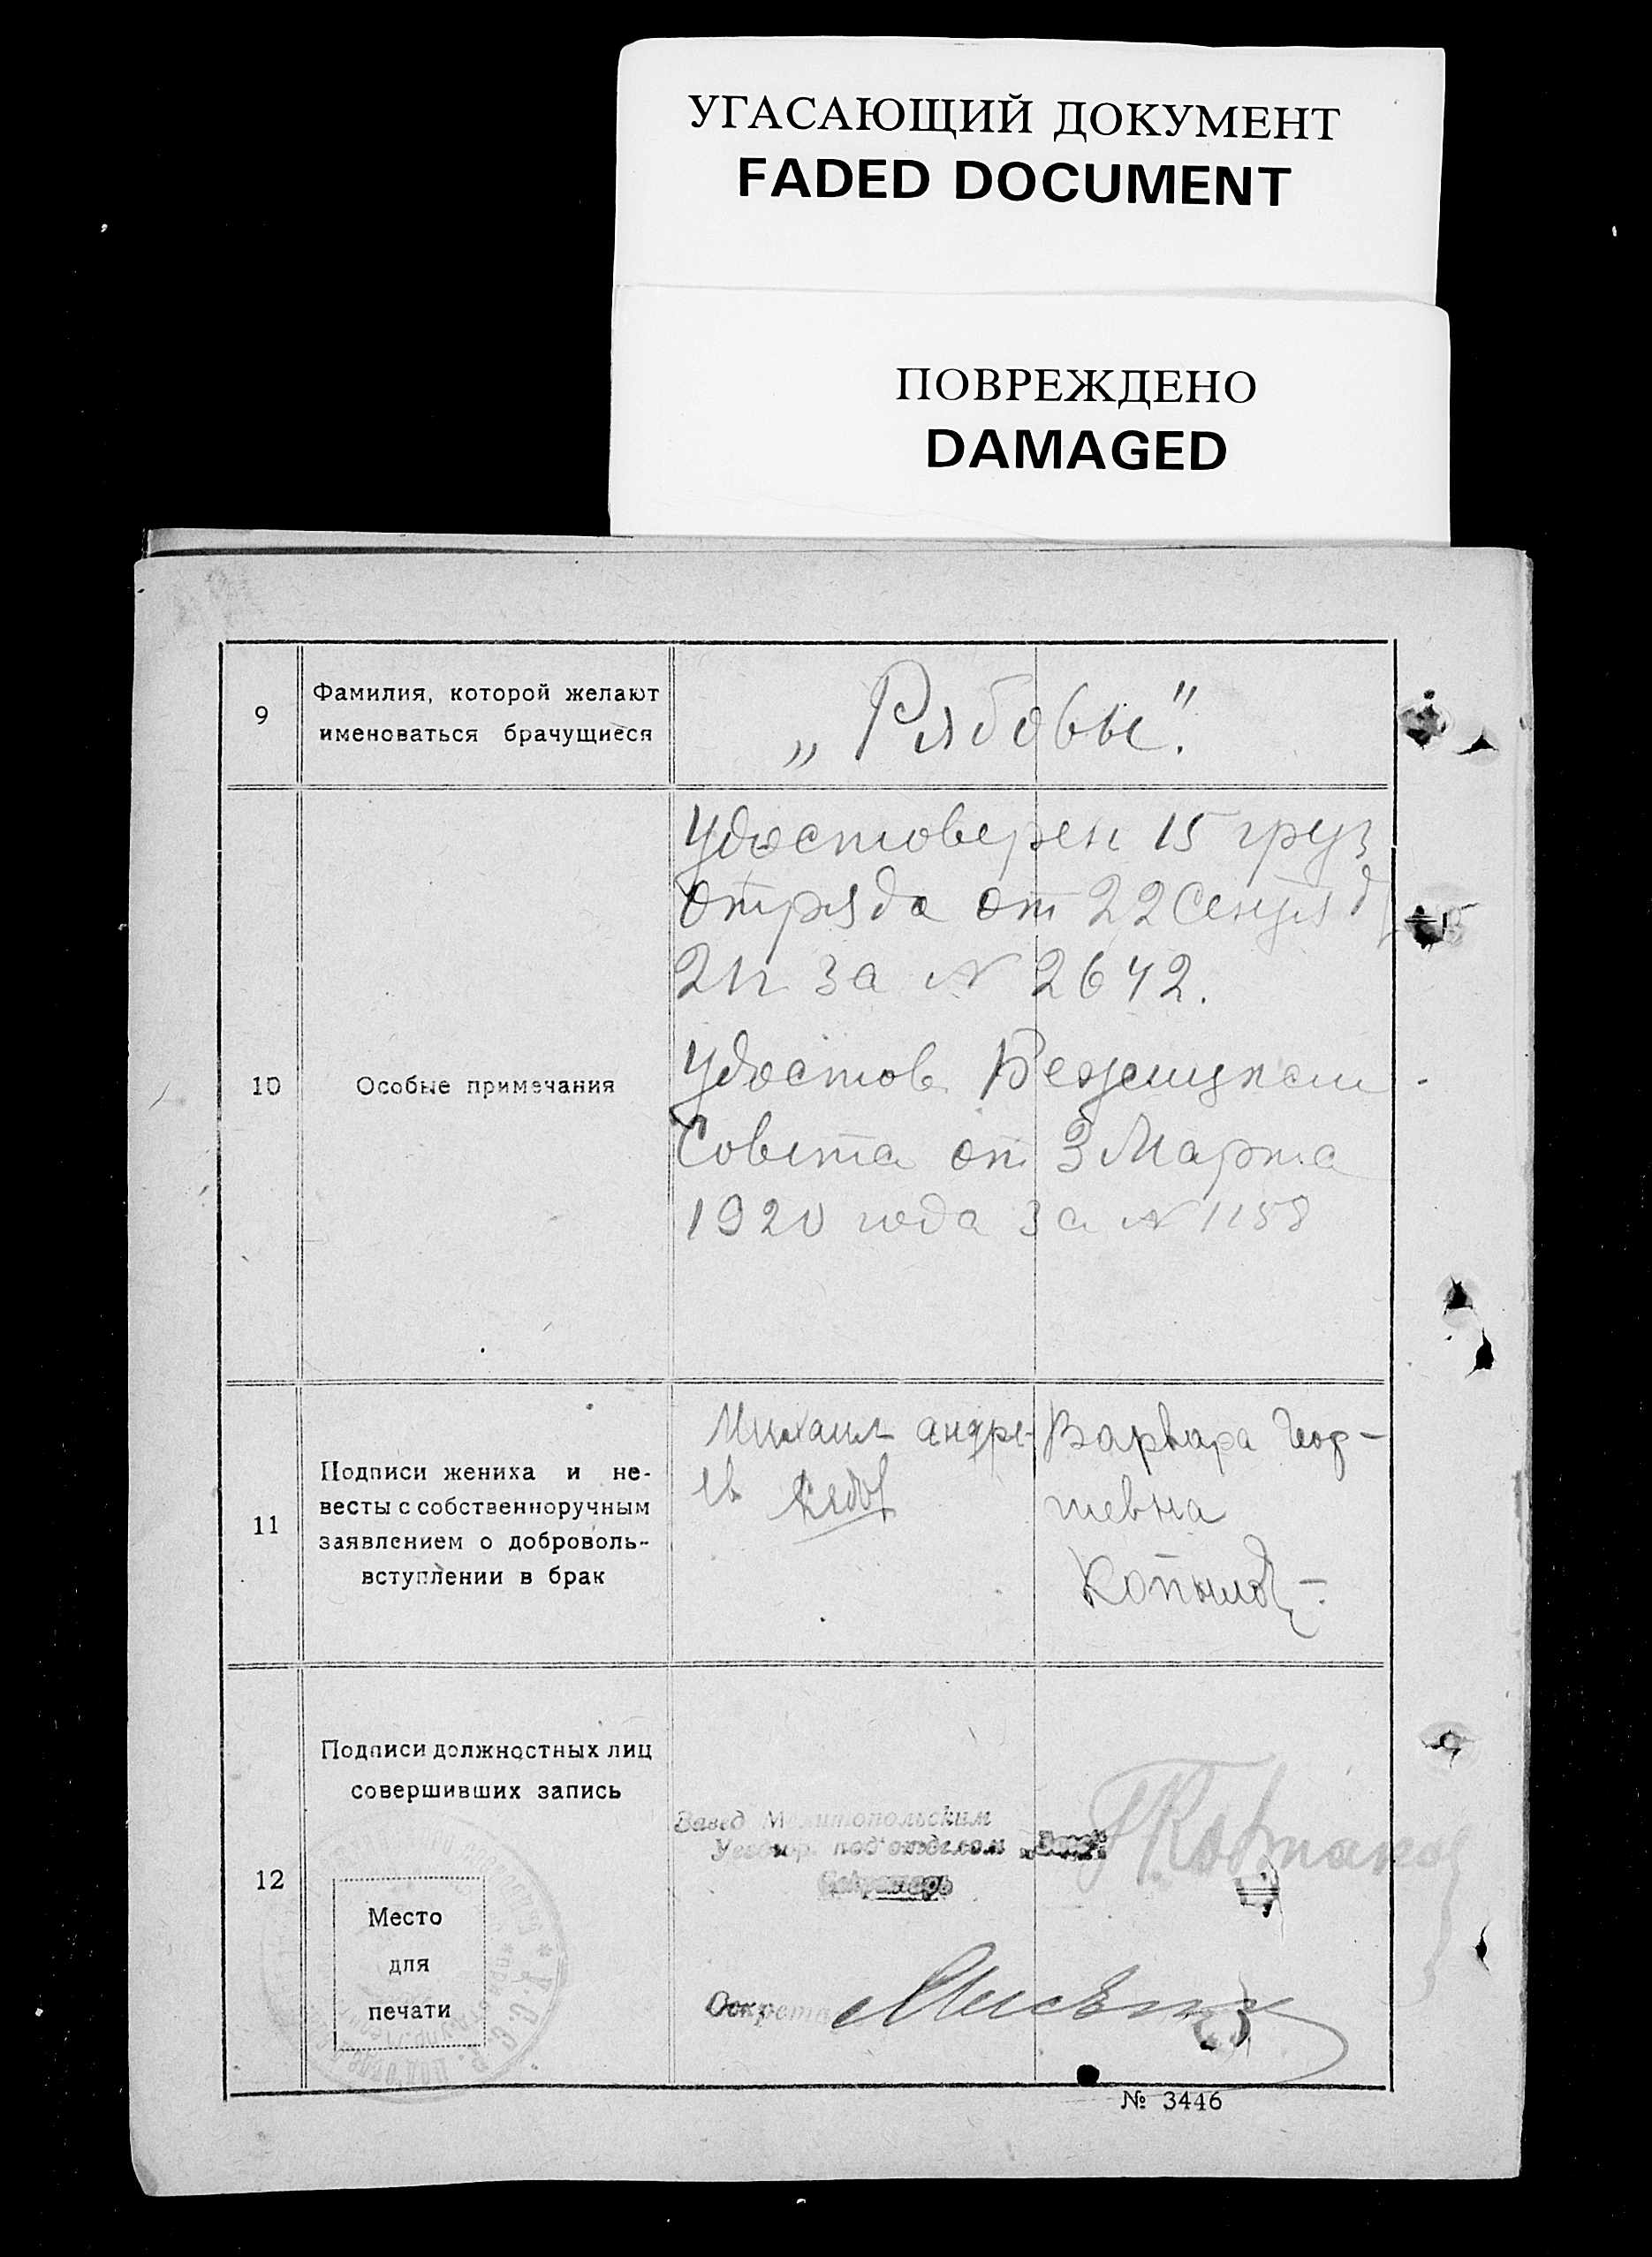 УГАСАЮЩИЙ ДОКУМЕНТ
FADED DOCUMENT
ПОВРЕЖДЕНО
DAMAGED
9
Фамилия, которой желают
именоваться брачущиеся
„Рябовы".
10
Особые примечания
Удостоверен 15 груз
отряда от 22 Сентяб
21г за № 2642.
Удостов. Бежицкаго
Совета от 3 Марта
1920 года за № 1158
11
Подписи жениха и не-
весты с собственноручным
заявлением о доброволь-
вступлении в брак
Михаил андре-
ев Рябов
Варвара Геор-
гиевна
Копылов
12
Подписи должностных лиц
совершивших запись
Место
для
печати
Завед Мелитопольским
под'отделом
Секретарь
Секрета
№ 3446